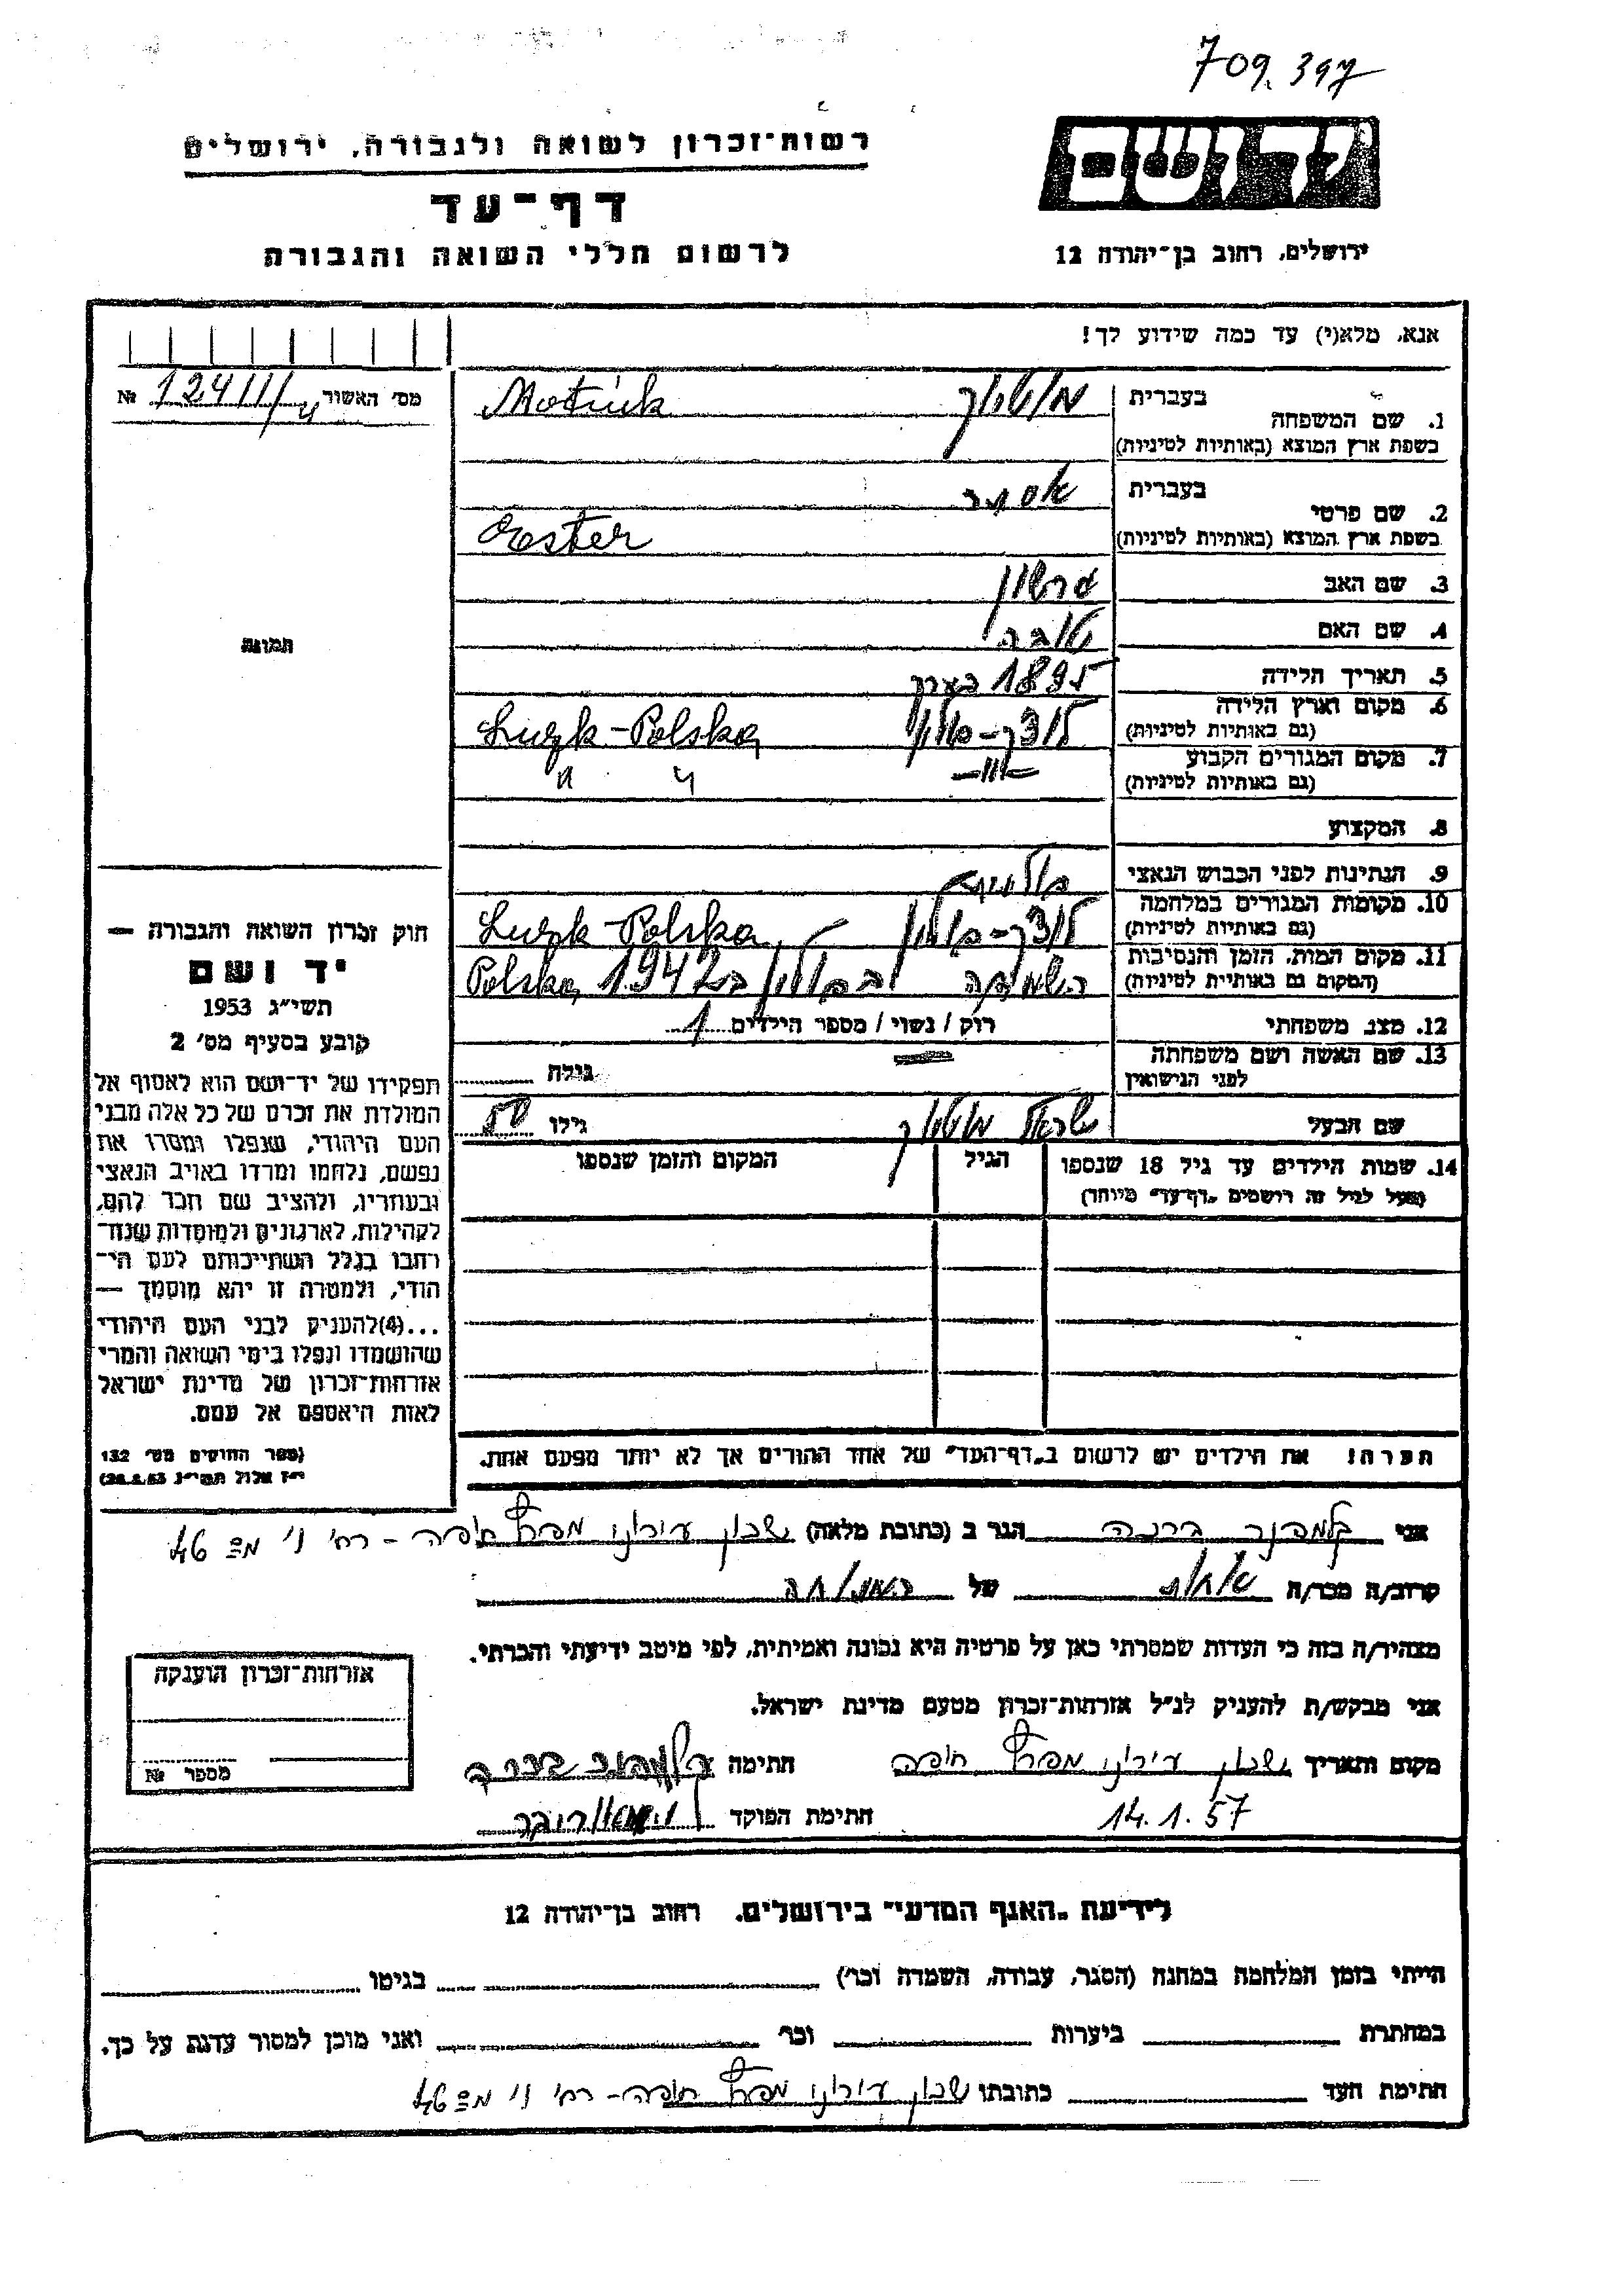 709.397
רשות־זכרון לשואה ולגבורה, ירושלים
יד ושם
דף־עד
לרשום חללי השואה והגבורה
ירושלים, רחוב בן־יהודה 12
אנא, מלא(י) עד כמה שידוע לך!
מס' האשור 12411/ №
1. שם המשפחה
בעברית
Motiuk
בשפת ארץ המוצא (באותיות לטיניות)
2. שם פרטי
בעברית אסתר
בשפת ארץ המוצא (באותיות לטיניות) Ester
3. שם האב גרשון
4. שם האם טובה
5. תאריך הלידה 1895 בערך
6. מקום וארץ הלידה לוצק - פולין Łuzk - Polska
(גם באותיות לטיניות)
7. מקום המגורים הקבוע -"-
(גם באותיות לטיניות)
8. המקצוע
9. הנתינות לפני הכבוש הנאצי פולנית
10. מקומות המגורים במלחמה לוצק - פולין - Łuzk - Polska
(גם באותיות לטיניות)
11. מקום המות, הזמן והנסיבות בפולין ב 1942 Polska
(המקום גם באותיות לטיניות)
12. מצב משפחתי רוק / נשוי / מספר הילדים 1
13. שם האשה ושם משפחתה
לפני הנישואין גילה
שם הבעל ישראל גילו 50
14. שמות הילדים עד גיל 18 שנספו
(מעל לגיל זה רושמים „דף־עד" מיוחד)
הגיל
המקום והזמן שנספו
תמונה
חוק זכרון השואה והגבורה —
יד ושם
תשי"ג 1953
קובע בסעיף מס' 2
תפקידו של יד־ושם הוא לאסוף אל
המולדת את זכרם של כל אלה מבני
העם היהודי, שנפלו ומסרו את
נפשם, נלחמו ומרדו באויב הנאצי
ובעוזריו, ולהציב שם וזכר להם,
לקהילות, לארגונים ולמוסדות שנח־
רבו בגלל השתייכותם לעם הי־
הודי, ולמטרה זו יהא מוסמך —
...(4) להעניק לבני העם היהודי
שהושמדו ונפלו בימי השואה והמרי
אזרחות־זכרון של מדינת ישראל
לאות היאספם אל עמם.
(ספר החוקים מס' 132
י"ז אלול תשי"ג 28.8.53)
הערה! את הילדים יש לרשום ב„דף־העד" של אחד ההורים אך לא יותר מפעם אחת.
אני ברכה הגר ב (כתובת מלאה) שכון עירוני מפרץ חיפה - רח' ני 46
קרוב/ה מכר/ה אחות של המנוחה
מצהיר/ה בזה כי העדות שמסרתי כאן על פרטיה היא נכונה ואמיתית, לפי מיטב ידיעתי והכרתי.
אני מבקש/ת להעניק לנ"ל אזרחות־זכרון מטעם מדינת ישראל.
מקום ותאריך שכון עירוני מפרץ חיפה חתימה ברכה
14.1.57 חתימת הפוקד
אזרחות־זכרון הוענקה
מספר №
לידיעת „האגף המדעי" בירושלים, רחוב בן־יהודה 12
הייתי בזמן המלחמה במחנה (הסגר, עבודה, השמדה וכו') בגיטו
במחתרת ביערות וכו' ואני מוכן למסור עדות על כך.
חתימת העד כתובתו שכון עירוני מפרץ חיפה - רח' ני 46